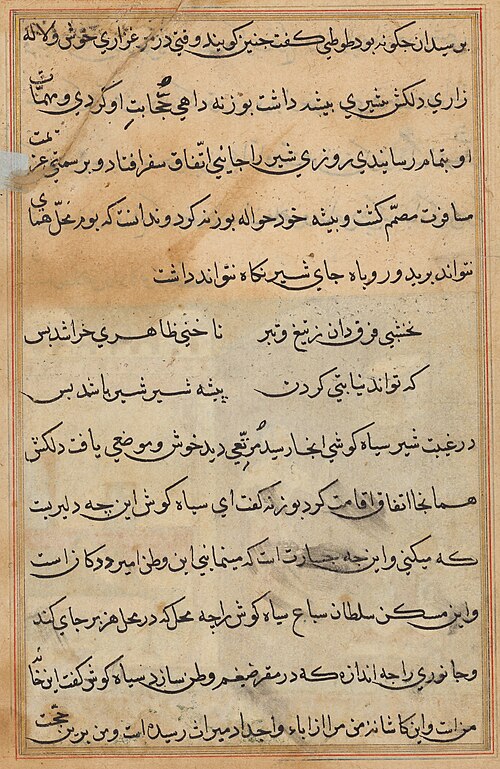 پرسید آن چکونه بود طوطی کفت چنین کویند وقتی در مرغزاری خوش و لاله
زاری دلکش شیری بیشه داشت بوزنه داهی حجابت او کردی و مهمات
او بتمام رسانیدی روزی شیر را جایی اتفاق سفر افتاد و بر سمتی عزیمت
مسافرت مصمم کشت و بیشه خود حواله بوزنه کرد و ندانست که بوم محل همای
نتواند برید و روباه جای شیر نکاه نتواند داشت
نخشبی فرق دان ز تیغ و تبر ناخنی ظاهری خراشد بس
که تواند نیابتی کردن پیشه شیر شیر باشد بس
در غیبت شیر سیاه کوشی آنجا رسید مرتعی دید خوش و موضعی یافت دلکش
همانجا اتفاق اقامت کرد بوزنه کفت ای سیاه کوش این چه دلیریت
که میکنی و این چه جسارت است که مینمایی این وطن امیر ددکان است
و این مسکن سلطان سباع سیاه کوش را چه محل که در محل هزبر جای کند
و جانوری را چه اندازه که در مقر ضیغم وطن سازد سیاه کوش کفت این خانه
من است و این کاشانه من مرا از اباء و اجداد میراث رسیده است و من برین حجت